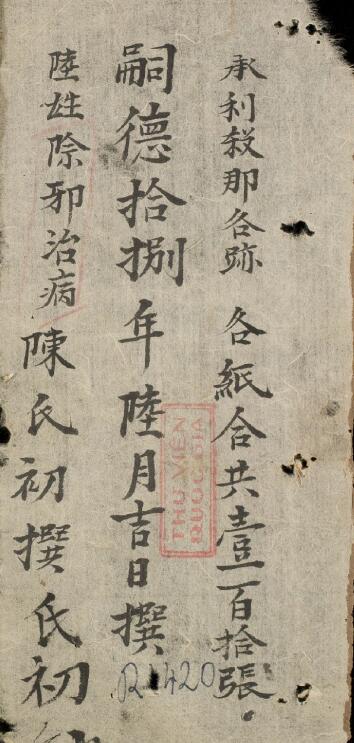 承利殺那各跡 各紙合共壹百拾張
嗣德拾捌年陸月吉日撰
陸姓除邪治病陳氏初撰氏初
THƯ VIỆN
QUỐC GIA
R.1420